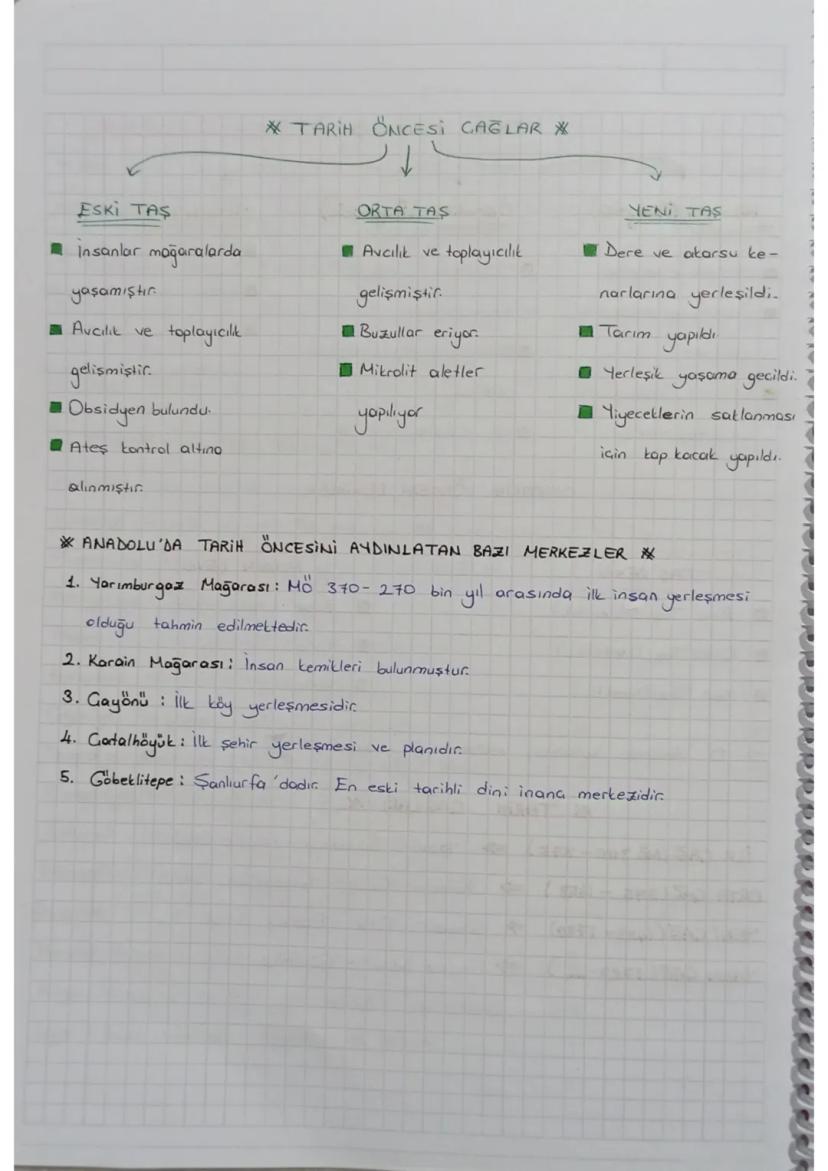 * TARİH ÖNCESİ CAĞLAR *
ESKİ TAŞ
İnsanlar mağaralarda
yaşamıştır.
Avcılık ve toplayıcılık
gelişmiştir.
Obsidyen bulundu.
Ateş kontrol altına
alınmıştır.
ORTA TAŞ
Avcılık ve toplayıcılık
gelişmiştir.
Buzullar eriyor.
Mikrolit aletler
yapılıyor
YENİ TAŞ
Dere ve akarsu ke-
narlarına yerleşildi.
Tarım yapıldı
Yerleşik yaşama gecildi.
Yiyeceklerin saklanması
icin kap kacak yapıldı.
* ANADOLU'DA TARİH ÖNCESİNİ AYDINLATAN BAZI MERKEZLER *
1. Yarımburgaz Mağarası: MÖ 370-270 bin yıl arasında ilk insan yerleşmesi
olduğu tahmin edilmektedir.
2. Karain Mağarası: İnsan kemikleri bulunmuştur.
3. Cayönü : İlk köy yerleşmesidir.
4. Catalhöyük: İlk şehir yerleşmesi ve planıdır.
5. Göbeklitepe: Şanlıurfa'dadır. En eski tarihli dini inanc merkezidir.